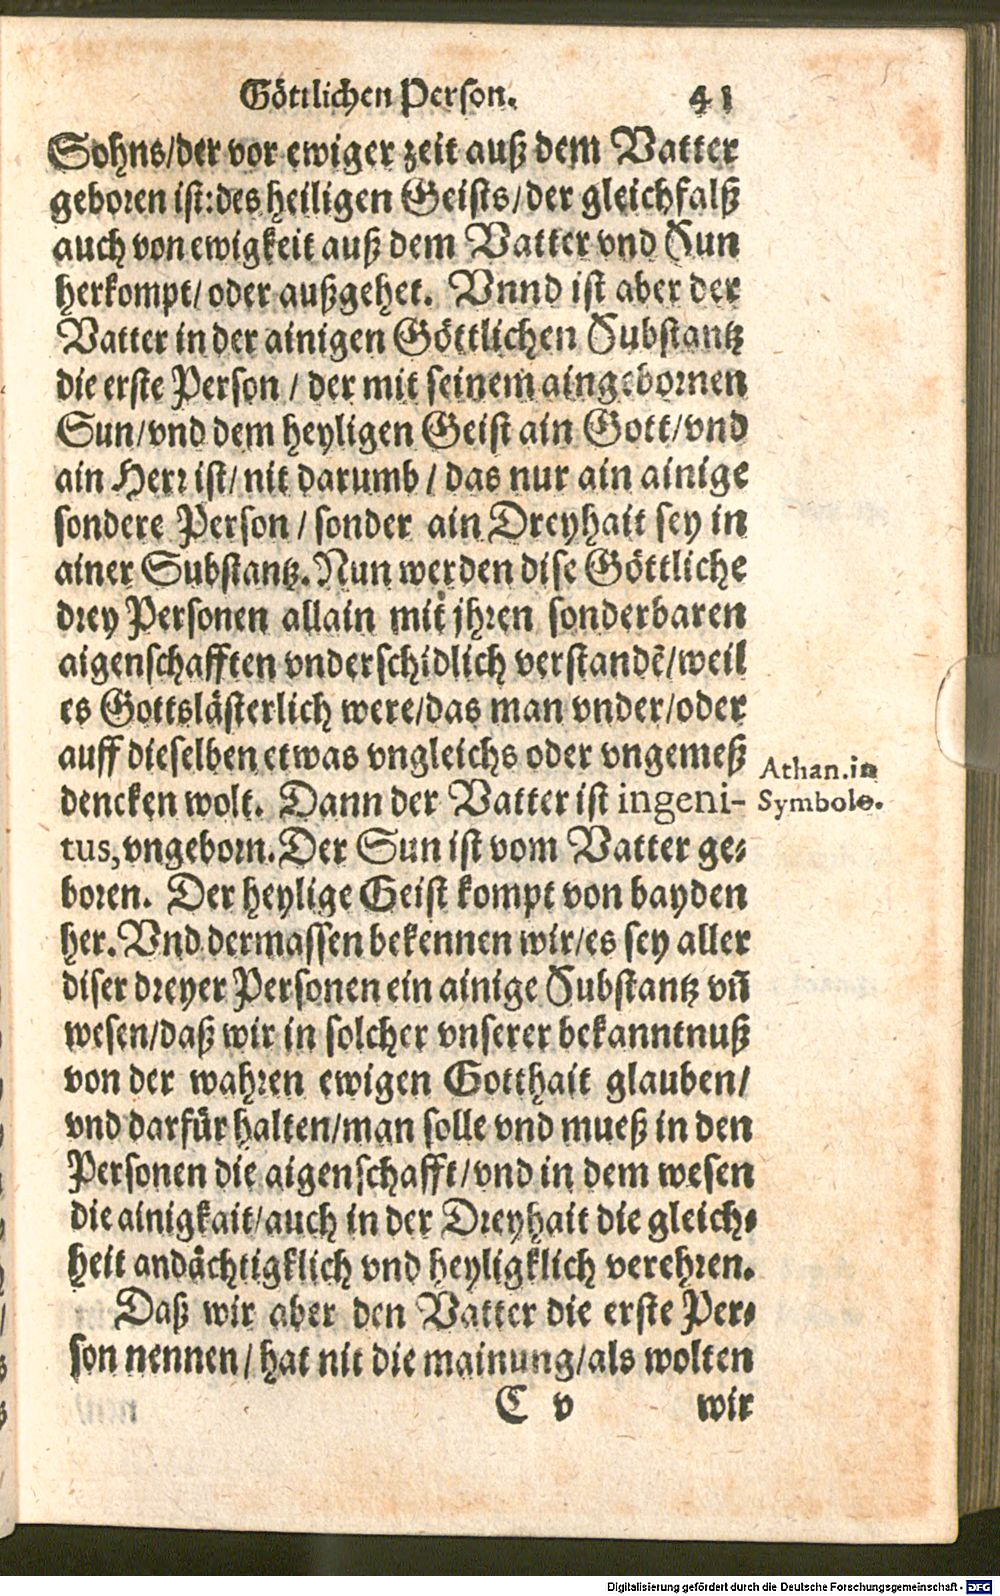 Göttlichen Person. 41
Sohns/der vor ewiger zeit auß dem Vatter
geboren ist:des heiligen Geists/der gleichfalß
auch von ewigkeit auß dem Vatter vnd Sun
herkompt/ oder außgehet. Vnnd ist aber der
Vatter in der ainigen Göttlichen Substantz
die erste Person / der mit seinem aingebornen
Sun/vnd dem heyligen Geist ain Gott/vnd
ain Herr ist/ nit darumb / das nur ain ainige
sondere Person / sonder ain Dreyhait sey in
ainer Substantz. Nun werden dise Göttliche
drey Personen allain mit jhren sonderbaren
aigenschafften vnderschidlich verstandē/weil
es Gottslästerlich were/das man vnder/oder
auff dieselben etwas vngleichs oder vngemeß
dencken wolt. Dann der Vatter ist ingeni-
tus, vngeborn. Der Sun ist vom Vatter ge-
boren. Der heylige Geist kompt von bayden
her. Vnd dermassen bekennen wir/es sey aller
diser dreyer Personen ein ainige Substantz vñ
wesen/daß wir in solcher vnserer bekanntnuß
von der wahren ewigen Gotthait glauben/
vnd darfür halten/man solle vnd mueß in den
Personen die aigenschafft/vnd in dem wesen
die ainigkait/auch in der Dreyhait die gleich-
heit andächtigklich vnd heyligklich verehren.
Daß wir aber den Vatter die erste Per-
son nennen/ hat nit die mainung/als wolten
C v wir
Athan.in
Symbolo.
Digitalisierung gefördert durch die Deutsche Forschungsgemeinschaft - DFG